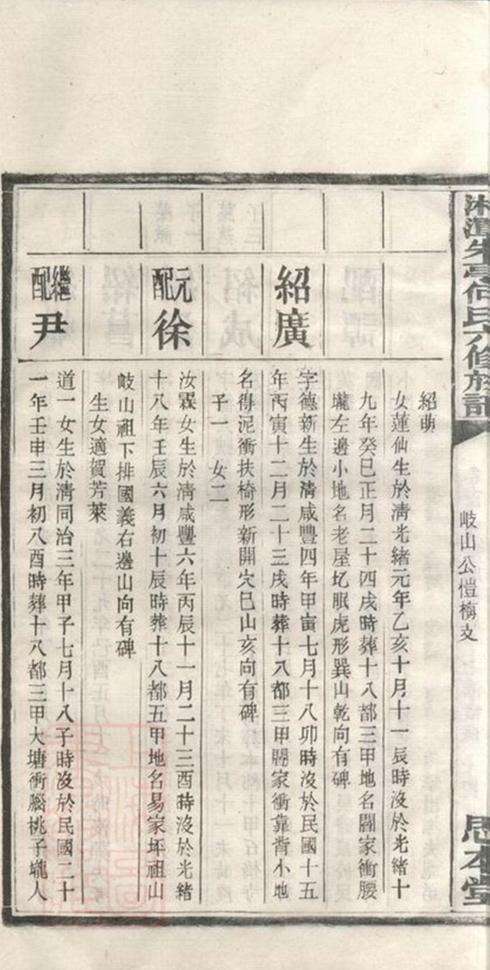 岐山公愷梅支
紹萌
女蓮仙生於清光緒元年乙亥十月十一辰時沒於光緒十
九年癸巳正月二十四戌時葬十八都三甲地名關家衝腰
壠左邊小地名老屋圫眠虎形巽山乾向有碑
紹廣
字德新生於清咸豐四年甲寅七月十八卯時沒於民國十五
年丙寅十二月二十三戌時葬十八都三甲關家衝靠背小地
名得泥衝扶椅形新開穴巳山亥向有碑
子一 女二
元配 徐
汝霖女生於清咸豐六年丙辰十一月二十三酉時沒於光緒
十八年壬辰六月初十辰時葬十八都五甲地名易家坪祖山
岐山祖下排國義右邊山向有碑
生女適賀芳萊
繼配 尹
道一女生於清同治三年甲子七月十八子時沒於民國二十
一年壬申三月初八酉時葬十八都三甲大塘衝𦛨桃子壠人